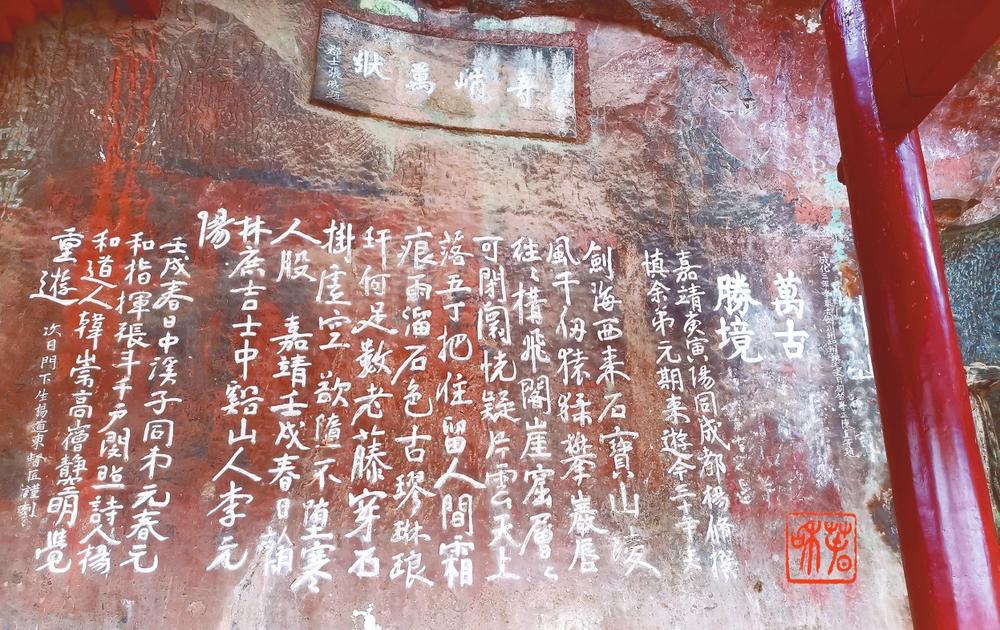 奇峭萬狀
萬古
勝境
嘉靖庚寅陽同成都楊脩撰
慎余弟元期来遊今三十年矣
劍海西来石寶山崚
风千仞猿猱攀巖唇
往々構飛閣崖窟層々
可閉闔恍疑片雲天上
落五丁把住留人間霜
痕雨溜石色古璆琳琅
玕何足數老藤穿石
掛虛空欲墮不墮寒
人股 嘉靖壬戌春日翰
林庶吉士中谿山人李元
陽
壬戌春日中溪子同弟元春元
和指揮張斗千户閔昭詩人楊
和道人韓崇高
重遊
次日門下生楊道東督匠謹刻